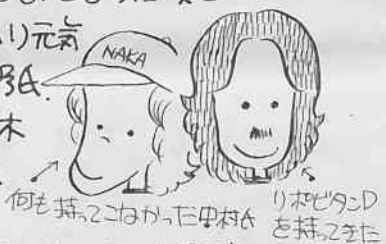 り元気
氏.
木
NAKA
何も持ってこなかった中村氏
リポビタンD
を持ってきた